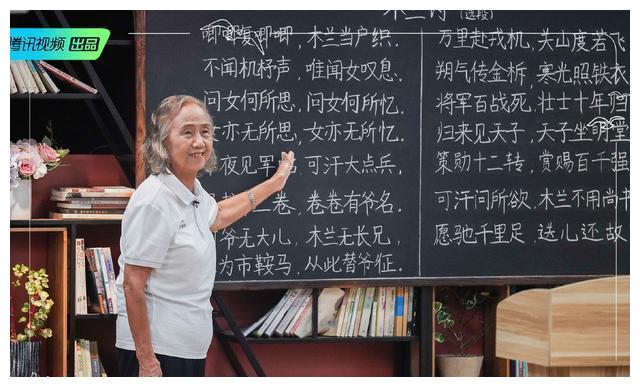 腾讯视频 出品
(选段)
唧唧复唧唧，木兰当户织．
不闻机杼声，唯闻女叹息．
问女何所思，问女何所忆．
女亦无所思，女亦无所忆．
夜见军，可汗大点兵，
二卷，卷卷有爷名．
爷无大儿，木兰无长兄，
为市鞍马，从此替爷征．
万里赴戎机，关山度若飞
朔气传金柝，寒光照铁衣
将军百战死，壮士十年归
归来见天子，天子坐明堂
策勋十二转，赏赐百千强
可汗问所欲，木兰不用尚书
愿驰千里足，送儿还故